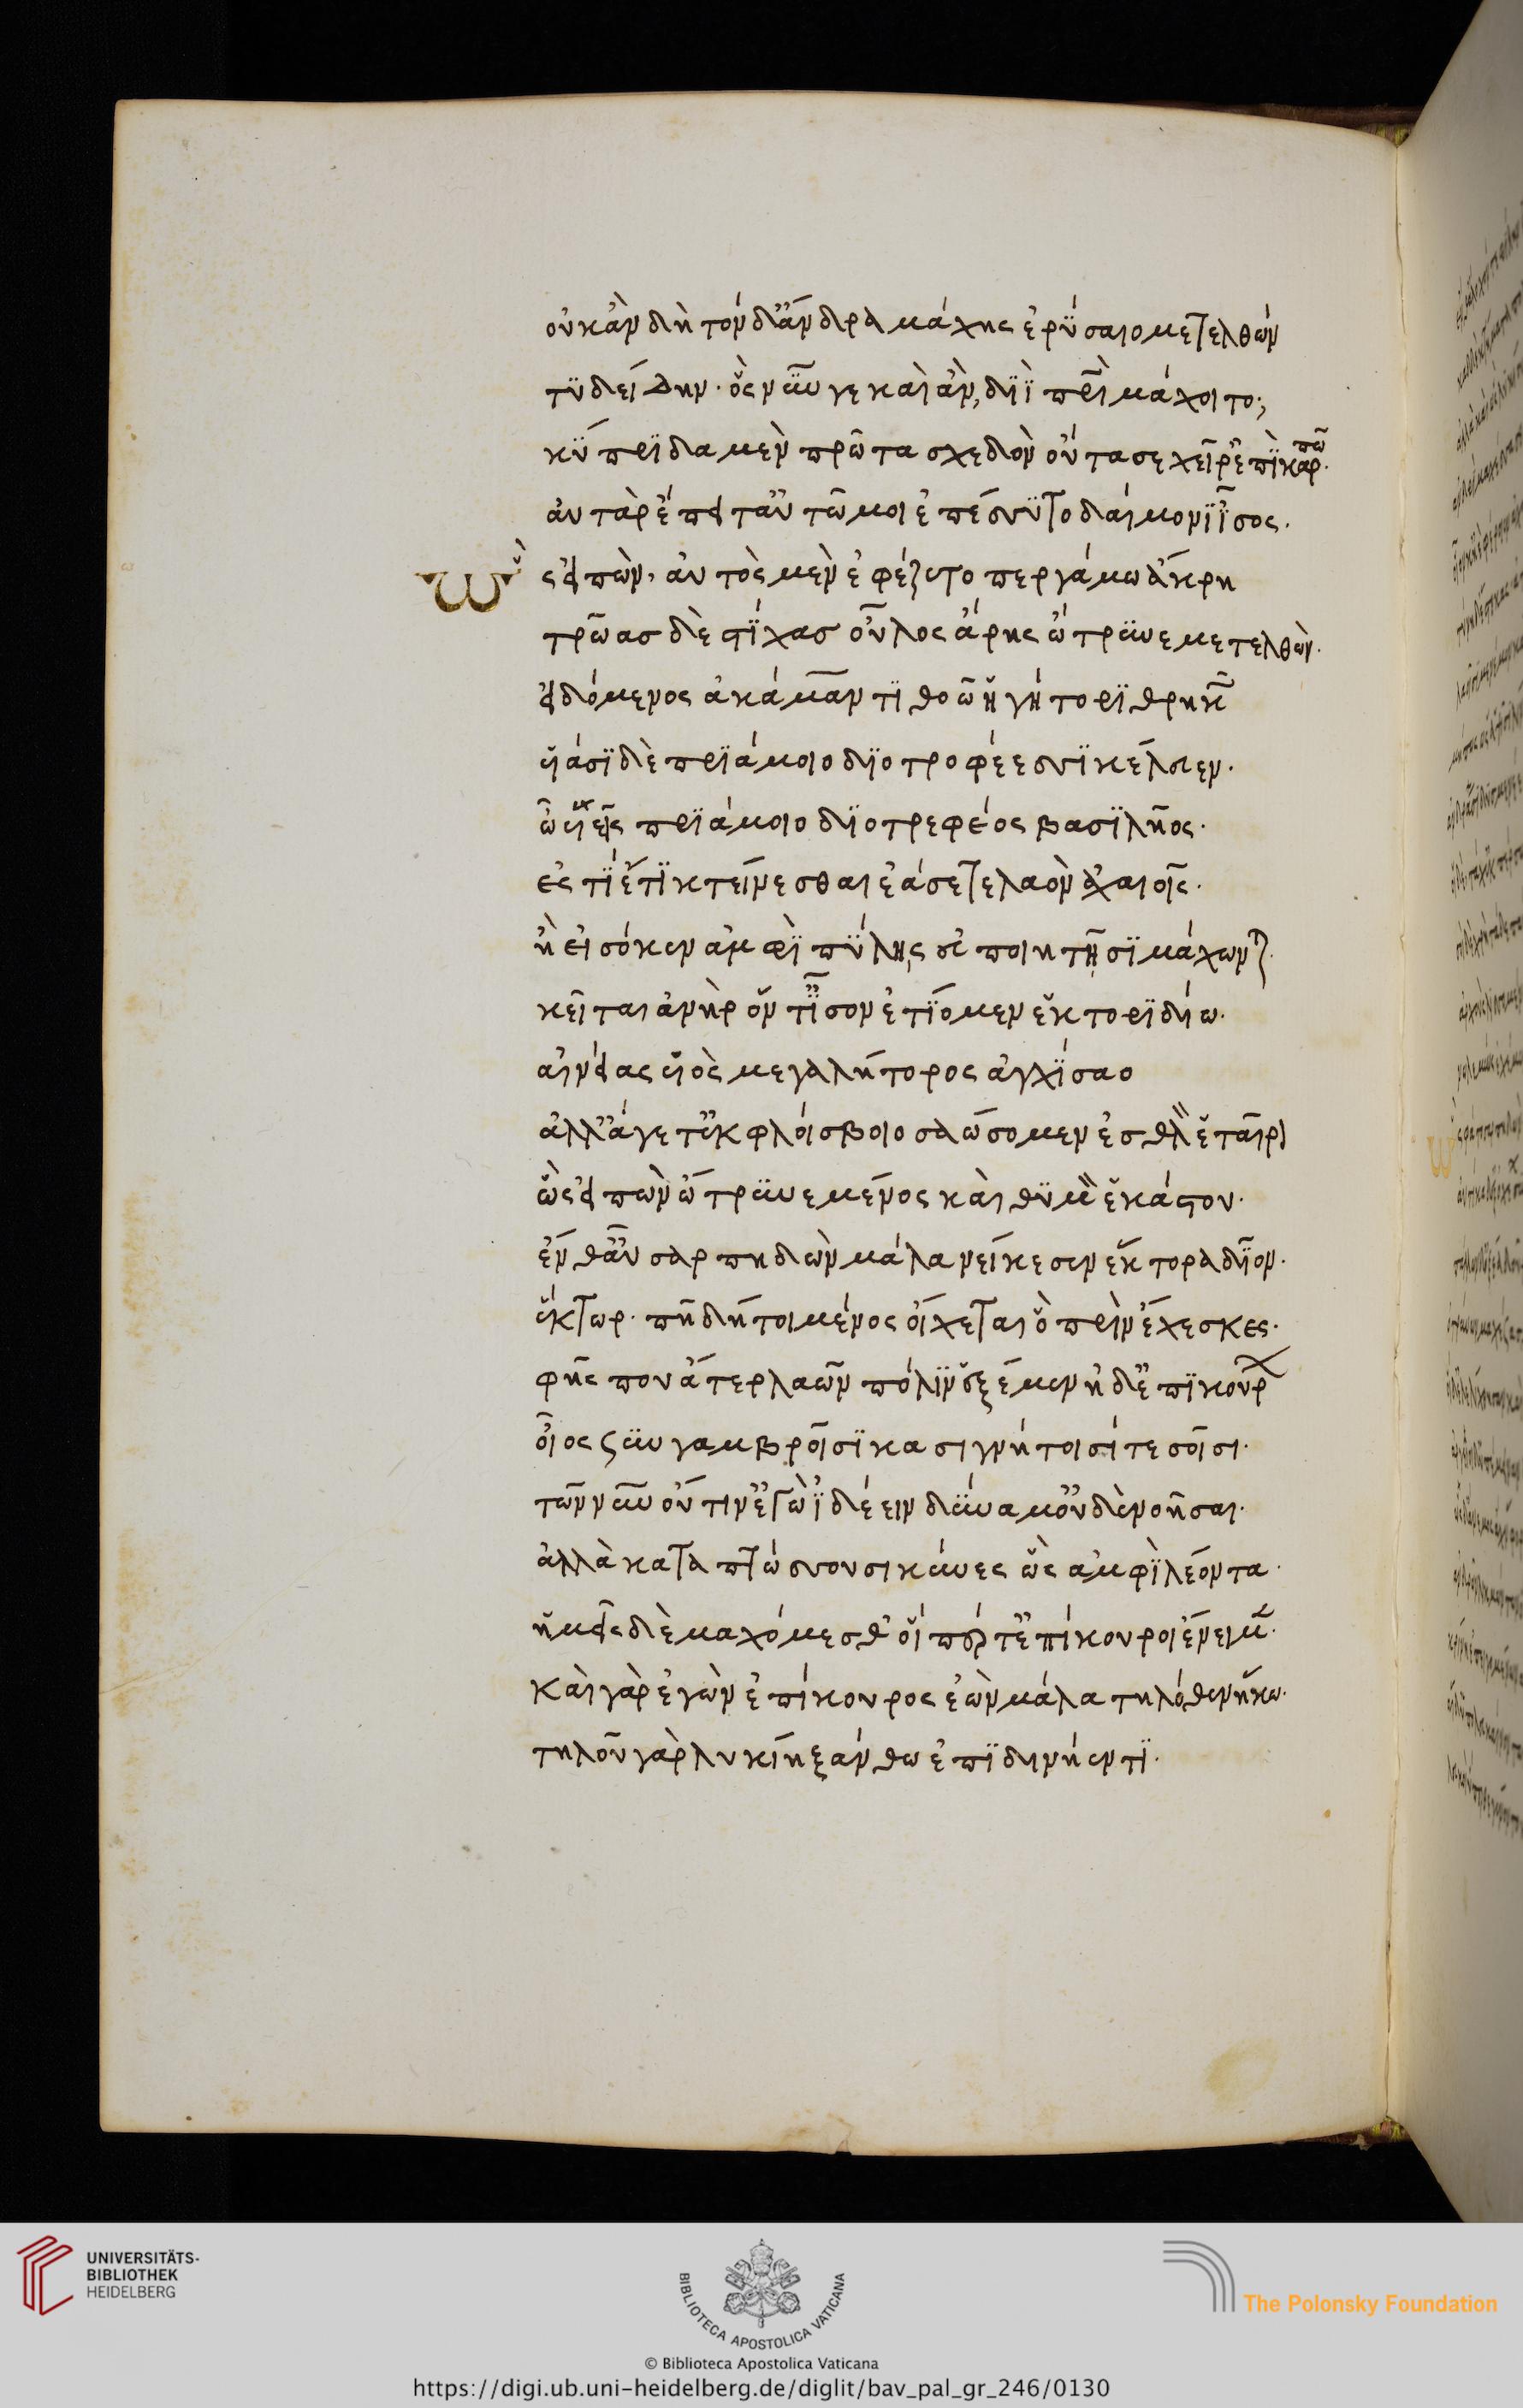 οὐκ ἂν δὴ τόνδ' ἄνδρα μάχης ἐρύσαιο μετελθών
τυδείδην· ὃς νῦν γε καὶ ἂν διὶ πατρὶ μάχοιτο;
κύπριδα μὲν πρῶτα σχεδὸν οὔτασε χεῖρ' ἐπὶ καρπῶ·
αὐτὰρ ἔπειτ' αὐτῶ μοι ἐπέσσυτο δαίμονι ἶσος·
Ὣς εἰπὼν, αὐτὸς μὲν ἐφέζετο περγάμω ἄκρη
τρῶας δὲ στίχας οὖλος ἄρης ὤτρυνε μετελθὼν·
εἰδόμενος ἀκάμαντι θοῶ ἡγήτορι θρηκῶν
υἱάσι δὲ πριάμοιο διοτροφέεσσι κέλευεν·
ὦ υἱεῖς πριάμοιο διοτρεφέος βασιλῆος·
ἐς τί ἔτι κτείνεσθαι ἐάσετε λαὸν ἀχαιοῖς·
ἢ εἰσόκεν ἀμφὶ πύλης εὐποιητῆσι μάχωνται·
κεῖται ἀνὴρ ὅν τ' ἶσον ἐτίομεν ἕκτορι δίω·
αἰνείας υἱὸς μεγαλήτορος ἀγχίσαο
ἀλλ' ἄγετ' ἐκ φλοίσβοιο σαώσομεν ἐσθλὸν ἑταῖρον
ὣς εἰπὼν ὤτρυνε μένος καὶ θυμὸν ἑκάστου·
ἔνθ' αὖ σαρπηδὼν μάλα νείκεσεν ἕκτορα δῖον·
ἕκτωρ· πῆ δή τοι μένος οἴχεται ὃ πρὶν ἔχεσκες·
φῆς που ἄτερ λαῶν πόλιν ἑξέμεν ἠδ' ἐπικούρων
οἶος σὺν γαμβροῖσι κασιγνήτοισί τε σοῖσι·
τῶν νῦν οὔτιν' ἐγὼ ἰδέειν δύναμ' οὐδὲ νοῆσαι·
ἀλλὰ καταπτώσσουσι κύνες ὣς ἀμφὶ λέοντα·
ἡμεῖς δὲ μαχόμεσθ' οἵ πέρ τ' ἐπίκουροι ἔνειμεν·
καὶ γὰρ ἐγὼν ἐπίκουρος ἐὼν μάλα τηλόθεν ἥκω·
τηλοῦ γὰρ λυκίη ξάνθω ἐπὶ δινήεντι·
UNIVERSITÄTS-
BIBLIOTHEK
HEIDELBERG
BIBLIOTECA APOSTOLICA VATICANA
The Polonsky Foundation
© Biblioteca Apostolica Vaticana
https://digi.ub.uni-heidelberg.de/diglit/bav_pal_gr_246/0130